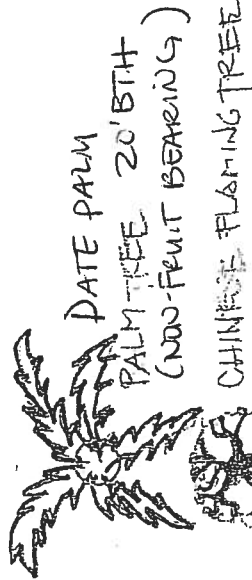 DATE PALM
PALM TREE 20' BTH
(NON-FRUIT BEARING)
CHINESE FLAMING TREE